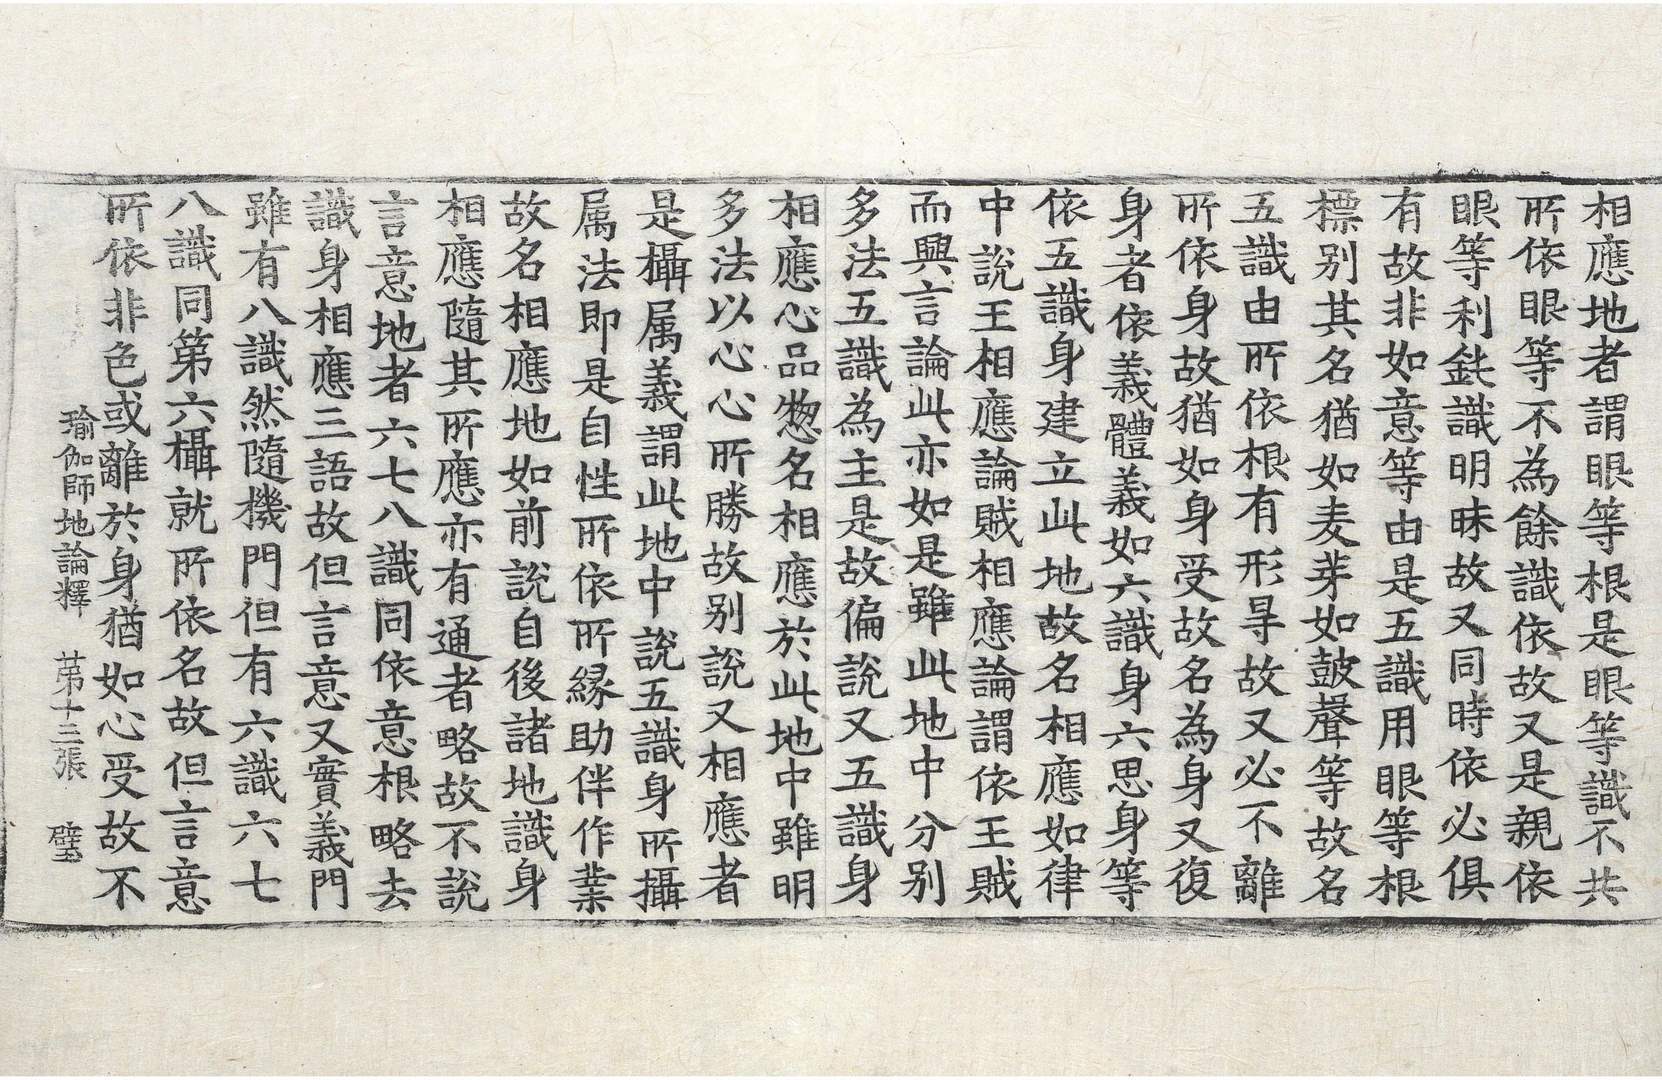 相應地者謂眼等根是眼等識不共
所依眼等不為餘識依故又是親依
眼等利鈍識明昧故又同時依必俱
有故非如意等由是五識用眼等根
標別其名猶如麦芽如皷聲等故名
五識由所依根有形㝵故又必不離
所依身故猶如身受故名為身又復
身者依義體義如六識身六思身等
依五識身建立此地故名相應如律
中說王相應論賊相應論謂依王賊
而興言論此亦如是雖此地中分別
多法五識為主是故偏說又五識身
相應心品惣名相應於此地中雖明
多法以心心所勝故別說又相應者
是攝属義謂此地中說五識身所攝
属法即是自性所依所緣助伴作業
故名相應地如前說自後諸地識身
相應隨其所應亦有通者略故不說
言意地者六七八識同依意根略去
識身相應三語故但言意又實義門
雖有八識然隨機門但有六識六七
八識同第六攝就所依名故但言意
所依非色或離於身猶如心受故不
瑜伽師地論釋　苐十三張　璧